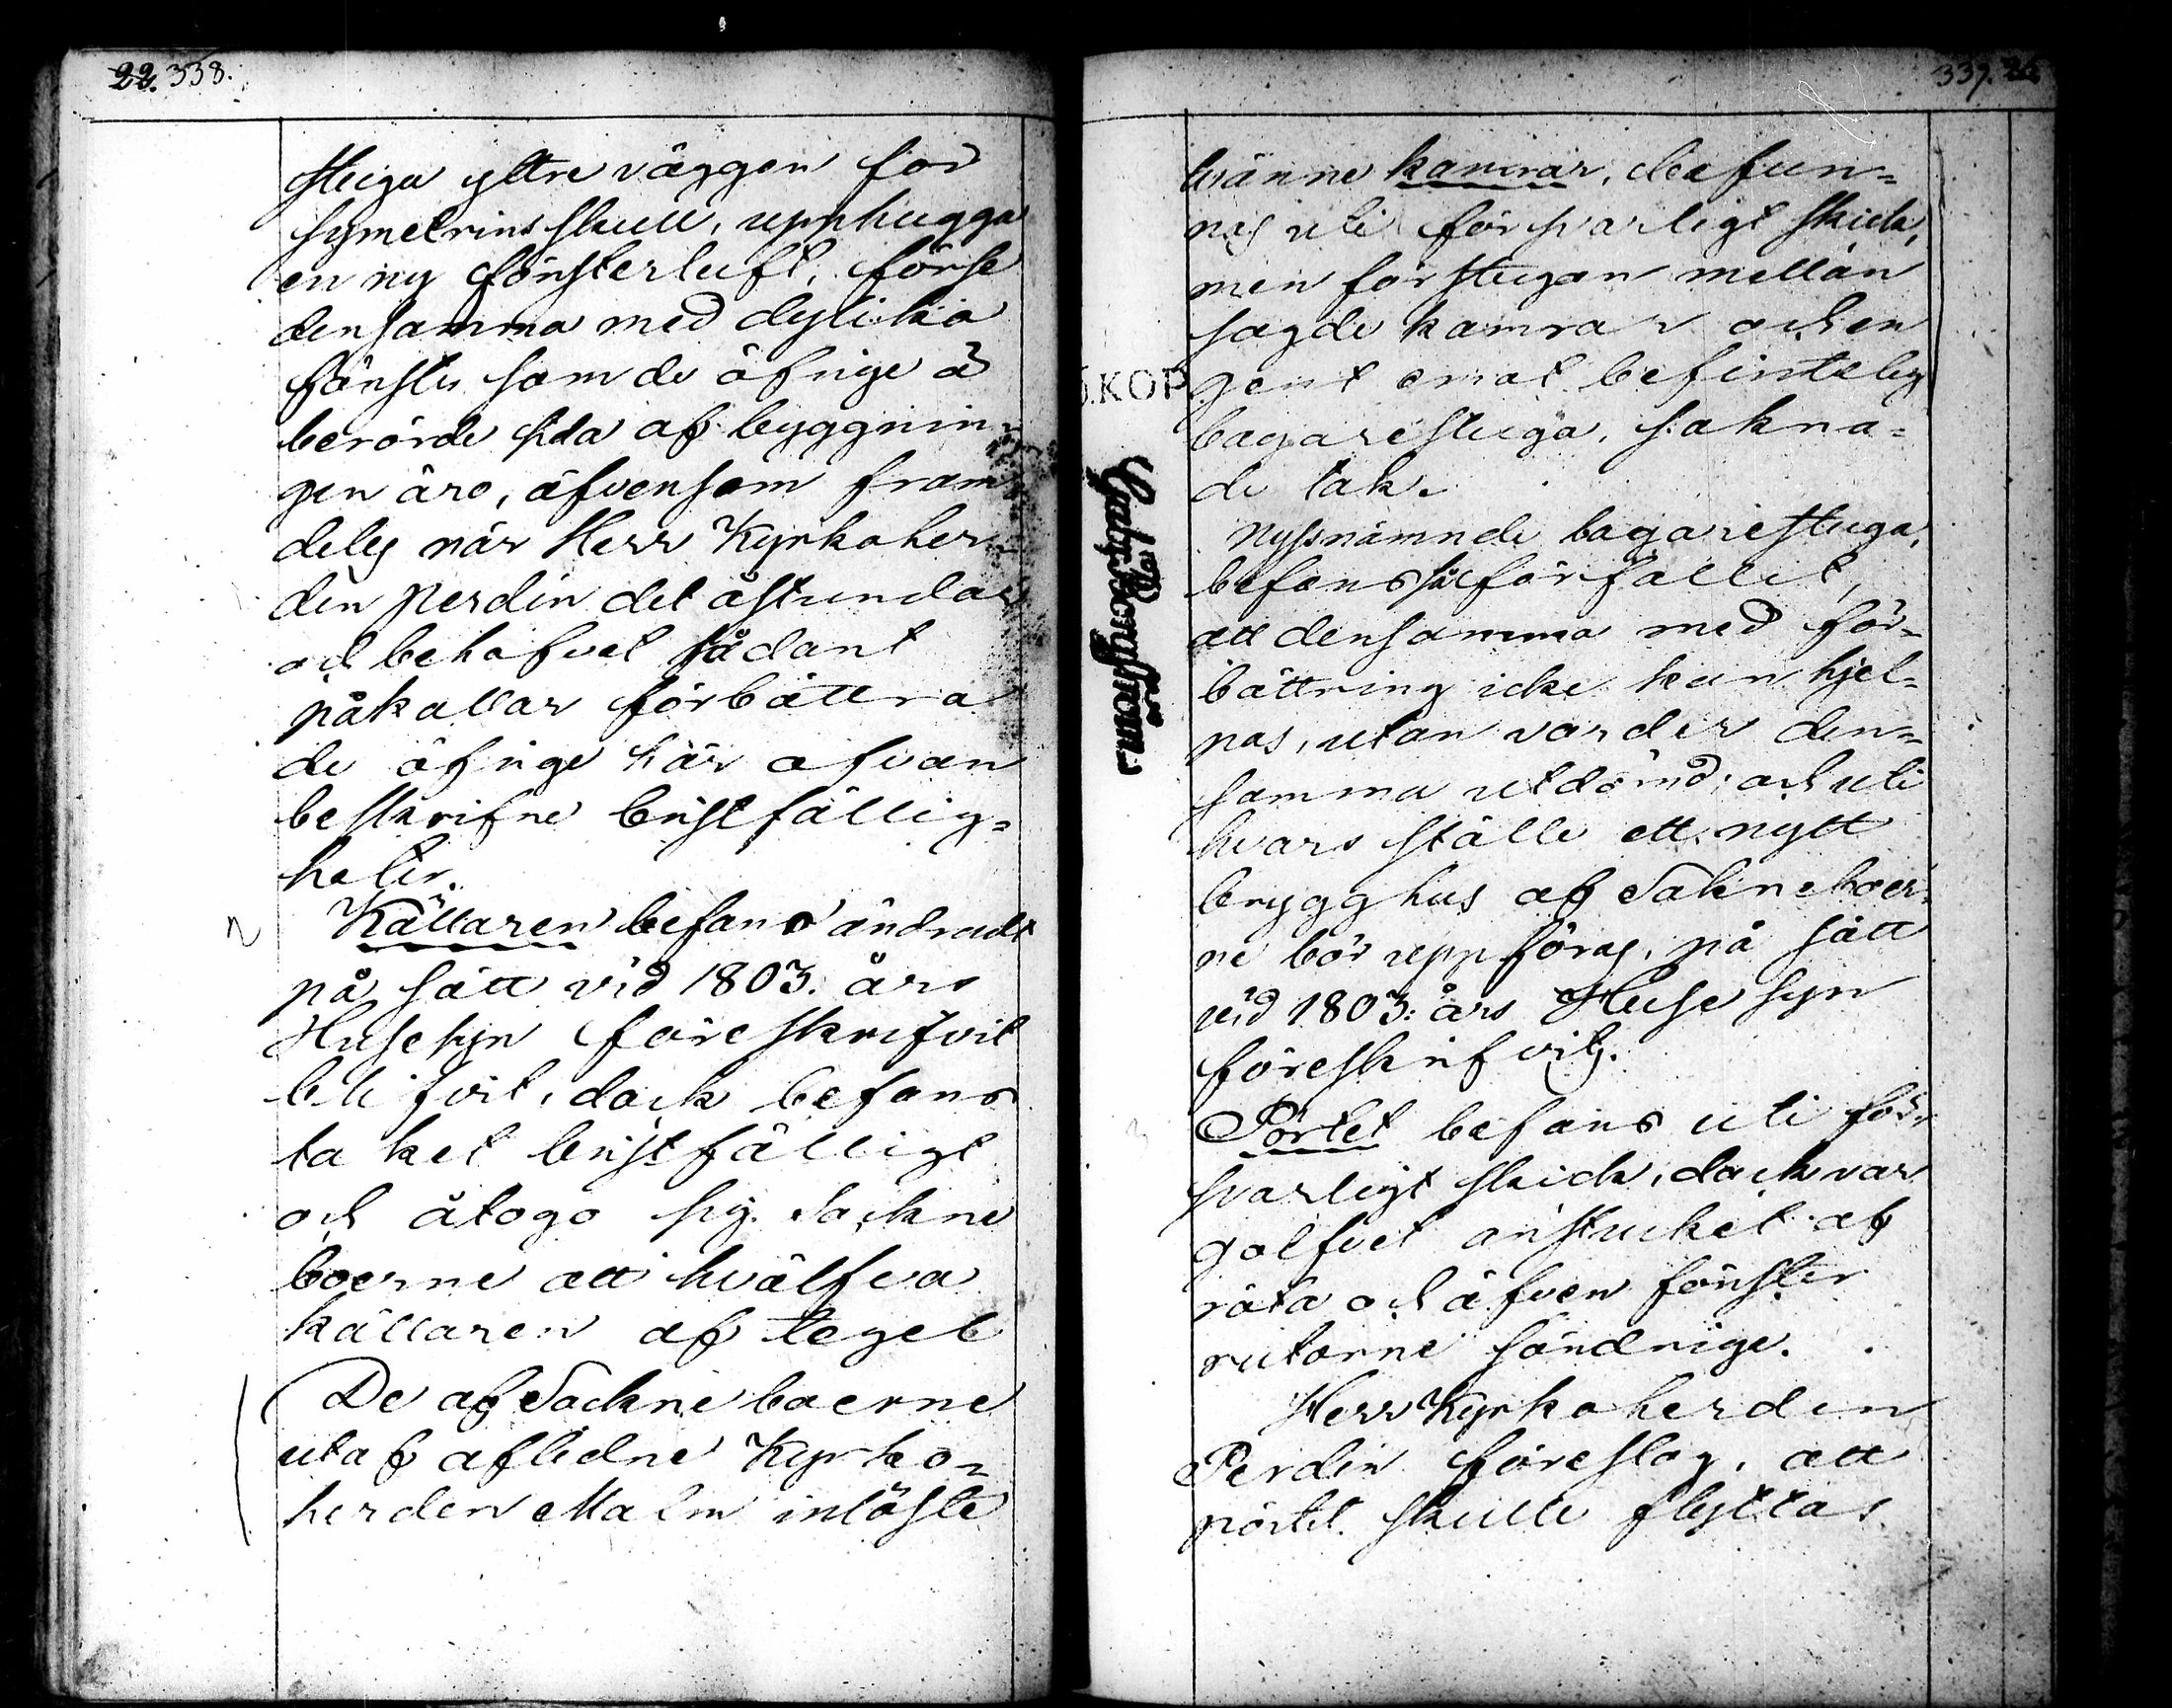 22. 338.
stuga yttre väggen för
symetrins skull, upphugga
en ny fönsterluft, förse
densamma med dylika
fönster som de öfrige å
berörde sida af byggnin-
gen äro, äfvensom fram
deles när Herr Kyrkoher-
den Perdin det åstundar
och behofvet sådant
påkallar förbättra
de öfrige här ofvan
beskrifne bristfällig=
heter.
2 Källaren befans ändradt
på sätt vid 1803: års
Husesyn föreskrifvit
blifvit, dock befans
taket bristfälligt
och åtogo sig Sockne
boerne att hvälfva
källaren af tegel
De af Sockne boerne
utaf aflidne Kyrko=
herden Malm inlöste
339.
tvänne kamrar, befun=
nos uti försvarligt skick,
men förstugan mellan
sagde kamrar och en
gent emot befintelig
bagarestuga, sakna=
de tak.
Nyssnämnde bagarestuga,
befans så förfallit,
att densamma med för=
bättring icke kan hjel=
pas, utan varder den=
samma utdömd; och uti
hvars ställe ett nytt
brygghus af Sokneboer-
ne bör uppföras, på sätt
vid 1803: års Huse syn
föreskrifvits.
3 Pörtet befans uti för-
svarligt skick, dock var
golfvet anstucket af
röta och äfven fönster
rutorne söndrige.
Herr Kyrkoherden
Perdin föreslog, att
pörtet skulle flyttas